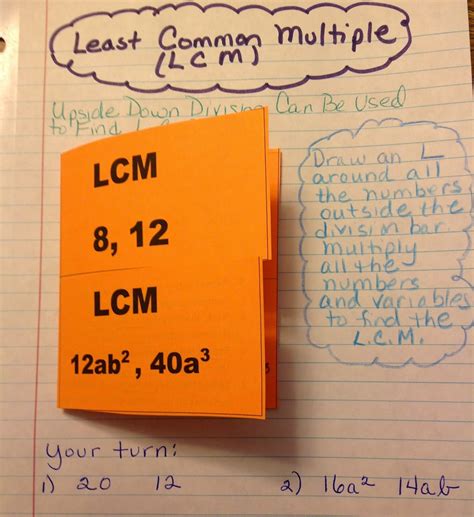 Least Common Multiple
(LCM)
Upside Down Division Can Be Used
to Find
LCM
8, 12
LCM
12ab², 40a³
Draw an L
around all
the numbers
outside the
division bar.
Multiply
all the
numbers
and variables
to find the
L.C.M.
Your turn:
1) 20 12
2) 16a² 14ab